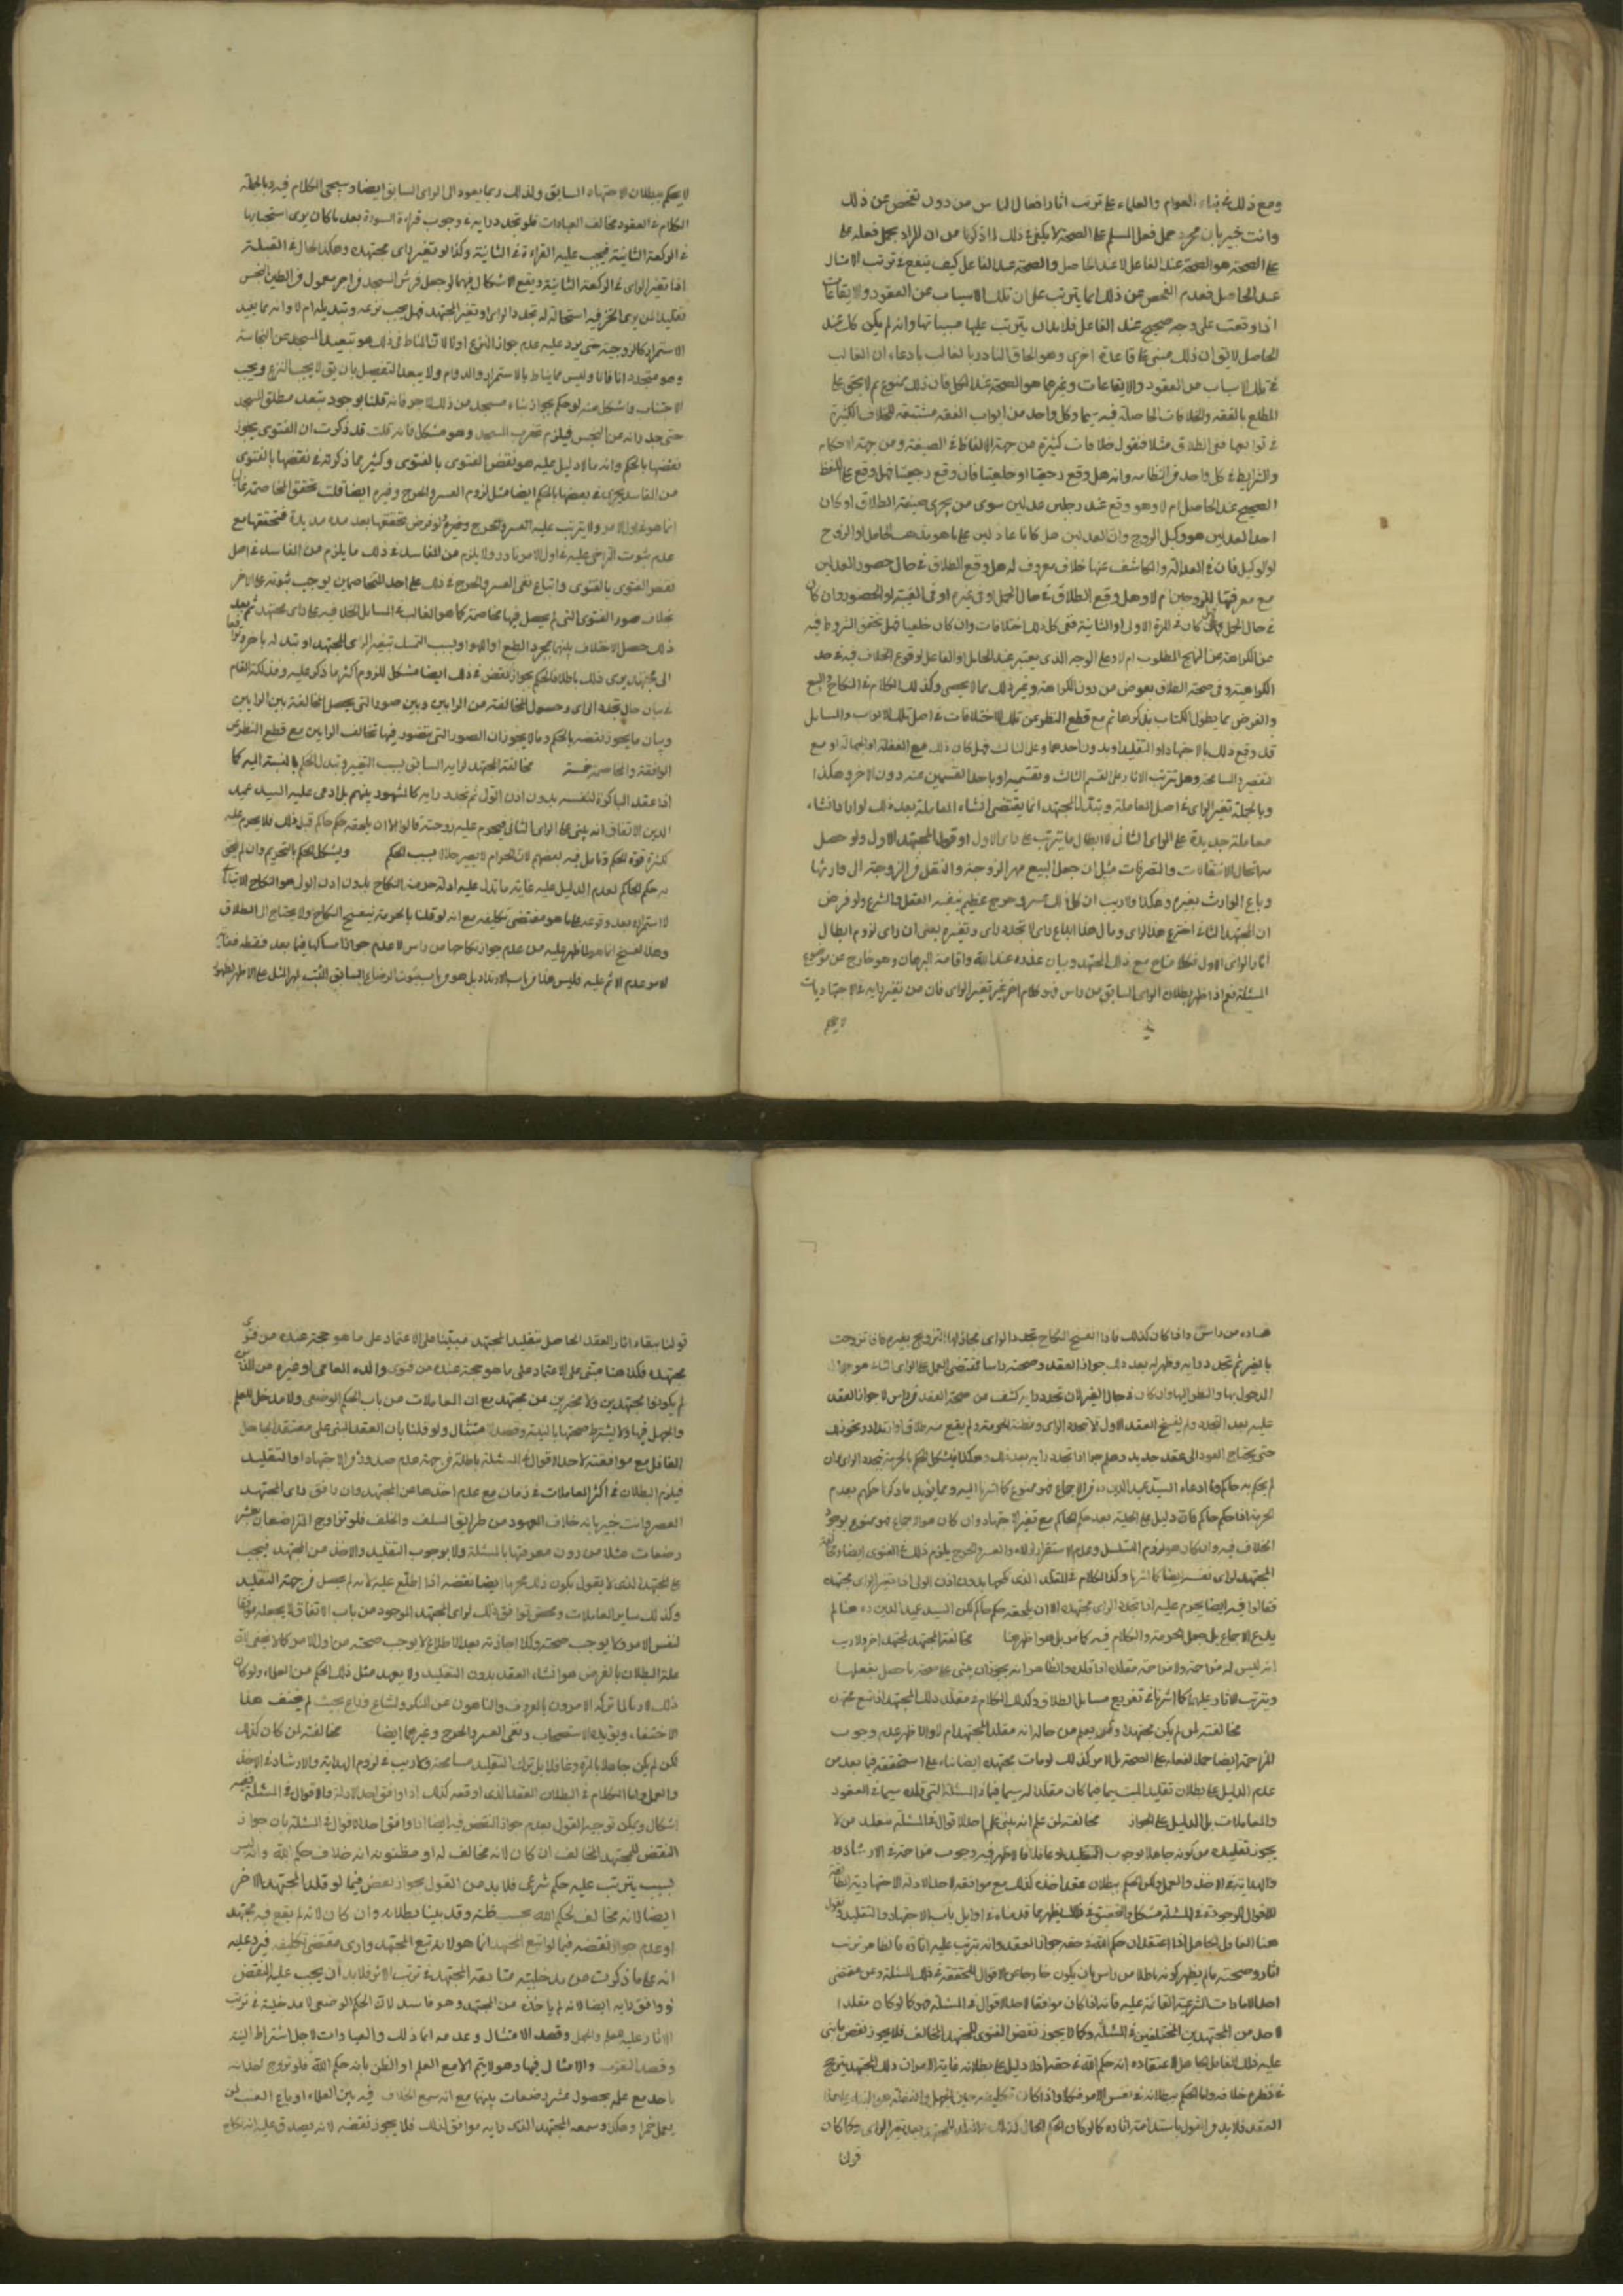 ومع ذلك في بناء العوام والعلماء على ترتب اثار افعال الناس من دون تفحص عن ذلك
وانت خبير بان مجرد حمل فعل المسلم على الصحة لا يكفى في ذلك لما ذكرنا من ان المراد بحمل فعله على
الصحة هو الصحة عند الفاعل لا عند الحاصل والصحة عند الفاعل كيف ينفع في ترتب الاثار
عند الحاصل فعدم الفحص عن ذلك انما يترتب على ان تلك الاسباب من العقود والايقاعات
اذا وقعت على وجه صحيح عند الفاعل فلابد ان يترتب عليها مسبباتها وان لم يكن كك عند
الحاصل لا يق ان ذلك مبنى على قاعدة اخرى وهو الحاق النادر بالغالب بادعاء ان الغالب
في تلك الاسباب من العقود والايقاعات وغيرهما هو الصحة عند الكل فان ذلك ممنوع لم لا يخفى على
المطلع بالفقه والخلافات الحاصلة فيه سيما وكل واحد من ابواب الفقه مشتمة للخلاف الكثيرة
في توابعها ففى الطلاق مثلا فنقول خلافات كثيرة من جهة الالفاظ في الصيغة ومن جهة الاحكام
والشرايط في كل واحد من اقسامه وانه هل وقع رجعيا او خلعيا فان وقع رجعيا فهل وقع على اللفظ
الصحيح عند الحاصل ام لا وهو وقع عند رجلين عدلين سوى من يجرى صيغة الطلاق او كان
احد العدلين هو وكيل الزوج وان العدلين هل كانا عادلين على ما هو مذهب الحامل او الزوج
او الوكيل فان في العدالة والكاشف عنها خلاف معروف له هل وقع الطلاق في حال حضور العدلين
مع معرفتها للزوجين ام لا وهل وقع الطلاق في حال الحمل او في غيره او في الغيبة او الحضور وان كان
في حال الحمل فهل كان في المرة الاولى او الثانية ففى كل ذلك اختلافات وان كان خلعيا فهل تحقق الشروط فيه
من الكراهة عن النهج المطلوب ام لا وعلى الوجه الذى يعتبر عند الحامل او الفاعل لوقوع الخلاف فيه في حد
الكراهية وفى صحة الطلاق بعوض من دون الكراهة وغير ذلك مما لا يحصى وكذلك الكلام في النكاح والبيع
والقرض مما يطول الكتاب بذكرها ثم مع قطع النظر عن تلك الاختلافات في اصل تلك الابواب والمسايل
قد وقع ذلك بالاجتهاد او التقليد او بدون احدهما وعلى الثالث فهل كان ذلك مع الغفلة او الجهالة او مع
التقصير والمسامحة وهل ترتب الاثار على القسم الثالث وتقسيمه او باحد القسمين عنه دون الاخر وهكذا
وبالجملة تغير الراى في اصل المعاملة وتبدل المجتهد انما يقتضى انشاء المعاملة بعد ذلك لو اراد انشاء
معاملة جديدة على الراى الثانى لا ابطال ما يترتب على راى الاول او قول المجتهد الاول ولو حصل
وباع الوارث بغيره وهكذا ولا ريب ان كل ذلك عسر وحرج عظيم ينفيه العقل والشرع ولو فرض
ان المجتهد الثانى اخترع هذا الراى ومال هذا اتباع راى لا تجدد راى وتغيره يعنى ان راى لزوم ابطال
اثار الراى الاول فكلامنا مع ذلك المجتهد وبيان عذره عند الله واقامة البرهان وهو خارج عن موضوع
المسئلة نعم اذا ظهر بطلان الراى السابق من راس فهو كلام اخر غير تغير الراى فان من تغير رايه في الاجتهاديات
لا يحكم
لا يحكم ببطلان الاجتهاد السابق ولذلك ربما يعود الى الراى السابق ايضا وسيجئ الكلام فيه وبالجملة
الكلام في العقود مخالف العبادات فلو تجدد رايه في وجوب قراءة السورة بعد ما كان يرى استحبابها
في الركعة الثانية فيجب عليه القراءة في الثانية وكذا لو تغير راى مجتهده وهكذا الحال في القبلة
اذا تغير الراى في الركعة الثانية ويقع الاشكال فيما لو جعل فرش المسجد من اجر معمول من الطين النجس
الاستمرار كالزوجية حتى يرد عليه عدم جواز النزع او لا لان المناط في ذلك هو تبعيد المسجد عن النجاسة
وهو متجدد انا فانا وليس مما يناط بالاستمرار والدوام ولا يبعد التفصيل بان يق لا يجب النزع ويجب
حتى جدرانه من النجس فيلزم تخريب المسجد وهو مشكل فان قلت قد ذكرت ان الفتوى يجوز
نقضها بالحكم وانه ما لا دليل عليه هو نقض الفتوى بالفتوى وكثير مما ذكرته في نقضها بالفتوى
من المفاسد يجرى في بعضها بالحكم ايضا مثل لزوم العسر والحرج وغيره ايضا قلت تحقق المخاصمة غالبا
انما هو في اول الامر ولا يترتب عليه العسر والحرج وغيره ولو فرض تحققها بعد مدة مديدة فتحققها مع
عدم ثبوت التراضى عليه في اول الامر نادر ولا يلزم من المفاسد في ذلك ما يلزم من المفاسد في اصل
نقض الفتوى بالفتوى واتباع نفى العسر والحرج في ذلك على احد المتخاصمين يوجب ثبوته على الاخر
بخلاف صور الفتوى التى لم يحصل فيها مخاصمة كما هو الغالب في المسايل الخلافية على راى مجتهد ثم بعد
ذلك حصل الاختلاف بينهما بمجرد الطمع او الهوا او لسبب التمسك بتغير راى المجتهد او تبدله باخر
الى مجتهد يرى ذلك باطلا فالحكم بجواز النقض في ذلك ايضا مشكل للزوم اكثر ما ذكر عليه وفذلكة المقام
في بيان حال تجدد الراى وحصول المخالفة من الرايين وبين صور التى يحصل المخالفة بين الرايين
وبيان ما يجوز نقضه بالحكم وما لا يجوز ان الصور التى يتصور فيها تخالف الرايين مع قطع النظر عن
المرافعة والمخاصمة خمسة مخالفة المجتهد لرايه السابق بسبب التغيير وتبدل الحكم بالنسبة اليه كما
اذا عقد الباكرة لنفسه بدون اذن الولى ثم تجدد رايه كالمشهود بينهم بل ادعى عليه السيد عميد
الدين الاتفاق انه يبنى على الراى الثانى فيحرم عليه زوجته قالوا الا ان يلحقه حكم حاكم قبل ذلك فلا يحرم عليه
لكثرة قوة الحكم وتامل فيه بعضهم لان الحرام لا يصير حلالا بسبب الحكم ويشكل الحكم بالتحريم وان لم يلحق
به حكم الحاكم لعدم الدليل عليه غاية ما تدل عليه ادلة حرمة النكاح بدون اذن الولى هو النكاح الابتدائى
لا استمراره بعد وقوعه على ما هو مقتضى تكليفه مع انه لو قلنا بالحرمة فينفسخ النكاح ولا يحتاج الى الطلاق
وهذا الفسخ انما هو لما ظهر عليه من عدم جواز نكاحها من راس لا عدم جواز امساكها فيما بعد فقط
هذه من راس واذا كان كذلك فاذا انفسخ النكاح بتجدد الراى فجاز لها التزويج بغيره فاذا تزوجت
بالغير ثم تجدد رايه وظهر له بعد ذلك جواز العقد وصحته راسا فمقتضى العمل على الراى الثانى هو جواز
الدخول بها والنظر اليها وان كان في حال الغير لان تجدد رايه كشف عن صحة العقد من راس لا جواز العقد
حتى يحتاج العود الى عقد جديد وهلم جرا اذا تجدد رايه بعد ذلك وهكذا فيشكل الحكم بالحرمة بتجدد الراى وان
لم يحكم به حاكم وما ادعاه السيد عميد الدين ره من الاجماع فهو ممنوع كما اشرنا اليه ومما يؤيد ما ذكرنا حكمهم بعدم
الحرمة اذا حكم حاكم فان دليل على الحلية بعد حكم الحاكم مع تغير الاجتهاد وان كان هو الاجماع فهو ممنوع لوجود
الخلاف فيه وان كان هو لزوم التسلسل وعدم الاستقرار والعسر والحرج يلزم ذلك في الفتوى ايضا
المجتهد لراى نفسه ايضا كما اشرنا وكذا الكلام في المقلد الذى نكحها بدون اذن الولى اذا تغير راى مجتهده
فقالوا فيه ايضا يحرم عليه اذا تجدد الراى مجتهده الا ان يلحقه حكم حاكم لكن السيد عميد الدين ره هنا لم
يدع الاجماع بل جعل الحرمة والكلام فيه كما مر بل هو اظهر هنا مخالفة المجتهد لمجتهد اخر ولا ريب
انه ليس له مزاحمته ولا مزاحمة مقلده اذا قلده والظاهر انه يجوز ان يبنى على صحة ما حصل بفعلها
ويترتب الاثار عليها كما اشرنا في تفريع مسايل الطلاق وكذلك الكلام في مقلد ذلك المجتهد اذا تبع مجتهده
مخالفته لمن لم يكن مجتهدا ولم يعلم من حاله انه مقلد المجتهد ام لا والاظهر عدم وجوب
المزاحمة ايضا حملا لفعله على الصحة بل الامر كذلك لو مات مجتهده ايضا بناء على استحقه فيما بعد من
عدم الدليل على بطلان تقليد الميت سيما فيما كان مقلدا له سيما في المسئلة التى قلده سيما في العقود
والمعاملات بل الدليل على الجواز مخالفته لمن علم انه يبنى على احد الاقوال في المسئلة بتقليد من لا
يجوز تقليده من كونه جاهلا بوجوب التقليد او غافلا فالاظهر فيه وجوب مزاحمة في الارشاد
والهداية في الاخذ والعمل ولكن الحكم ببطلان عقد اخذ كذلك مع موافقة لاحد الادلة الاجتهادية
للاقوال الموجودة في المسئلة مشكل والتحقيق في ذلك يظهر مما قدمناه في اوايل باب الاجتهاد والتقليد
هذا الغافل الجاهل اذا اعتقد ان حكم الله في حقه جواز العقد وانه يترتب عليه اثاره فالظاهر ترتب
اثاره وصحته ما لم يظهر كونه باطلا من راس بان يكون خارجا عن الاقوال المتحققة في ذلك المسئلة وعن مقتضى
احد الامارات الشرعية القائمة عليه فانه اذا كان موافقا لاحد الاقوال في المسئلة فهو كما لو كان مقلدا
لاحد من المجتهدين المختلفين في المسئلة وكما لا يجوز نقض الفتوى للمجتهد المخالف فلا يجوز نقض ما بنى
عليه ذلك الغافل الجاهل لاعتقاده انه حكم الله في حقه اذ لا دليل على بطلانه غاية الامر ان ذلك المجتهد يترجح
في نظره خلافه واما الحكم ببطلانه في نفس الامر فكلا واذا كان تكليفه حين الجهل والغفلة هو البناء على هذا
العقد فلا بد من القول باستدامة اثاره كما لو كان
قولنا
قولنا ببقاء اثار العقد الحاصل بتقليد المجتهد مبتنيا على الاعتماد على ما هو حجة عنده من فتوى
مجتهده فكذا هنا مبنى على الاعتماد على ما هو حجة عنده من فتوى والده العامى او غيره من الذين
لم يكونوا مجتهدين ولا مخبرين عن مجتهد مع ان المعاملات من باب الحكم الوضعى ولا مدخل للعلم
والجهل فيها ولا يشترط صحتها بالنية وقصد الامتثال ولو قلنا بان العقد المبنى على معتقد الجاهل
الغافل مع موافقته لاحد الاقوال في المسئلة باطلة من جهة عدم صدوره من الاجتهاد او التقليد
فيلزم البطلان في اكثر المعاملات في زمان مع عدم اخذها عن المجتهد وان وافق راى المجتهد
العصر وانت خبير بانه خلاف المعهود من طرايق السلف والخلف فلو تزاوج المتراضعان بعشر
رضعات مثلا من دون معرفتها بالمسئلة ولا بوجوب التقليد والاخذ من المجتهد فيجب
على المجتهد الذى لا يقول بكون ذلك محرما ايضا نقضه اذا اطلع عليه لانه لم يحصل من جهة التقليد
وكذلك ساير المعاملات ومحض توافق ذلك لراى المجتهد الموجود من باب الاتفاق لا يجعله موافقا
لنفس الامر ولا يوجب صحته وكذا اجازته بعد الاطلاع لا يوجب صحته من اول الامر كما لا يخفى لان
علة البطلان بالفرض هو انشاء العقد بدون التقليد ولا يعهد مثل ذلك الحكم من العلماء ولو كان
ذلك لازما لما تركه الامرون بالمعروف والناهون عن المنكر ولشاع وذاع بحيث لم يختف هذا
الاختفاء ويؤيده الاستصحاب ونفى العسر والحرج وغيرهما ايضا مخالفته لمن كان كذلك
لكن لم يكن جاهلا بالمرة وغافلا بل ترك التقليد مسامحة ولا ريب في لزوم الهداية والارشاد في الاخذ
والعمل واما الكلام في البطلان العقد الذى اوقعه كذلك اذا وافق احد الادلة والاقوال في المسئلة ففيه
اشكال ويمكن توجيه القول بعدم جواز النقض فيه ايضا اذا وافق احد الاقوال في المسئلة بان جواز
النقض للمجتهد المخالف ان كان لانه مخالف له او مظنونه انه خلاف حكم الله وانه ليس
بسبب يترتب عليه حكم شرعى فلا بد من القول بجواز نقض فيما لو قلد المجتهد الاخر
ايضا لانه مخالف لحكم الله بحسب ظنه وقد بينا بطلانه وان كان لانه لم يقع فيه مجتهد
او عدم جواز نقضه فيما لو اتبع المجتهد انما هو لانه تبع المجتهد وادى مقتضى تكليفه فيرد عليه
انه على ما ذكرت من مدخلية متابعة المجتهد في ترتب الاثر فلا بد ان يجب عليه النقض
لو وافق رايه ايضا لانه لم ياخذه من المجتهد وهو فاسد لان الحكم الوضعى لا مدخلية في ترتب
الاثار عليه للعلم والجهل وقصد الامتثال وعدمه انما ذلك والعبادات لاجل اشتراط النية
وقصد التقرب والامتثال فيها وهو لا يتم الا مع العلم او الظن بانه حكم الله فلو تزوج
باحد مع علمه بحصول عشر رضعات بينهما مع انه سمع الخلاف فيه بين العلماء او باع العنب لمن
يعمل خمرا وهكذا وسمعه المجتهد الذى رايه موافق لذلك فلا يجوز نقضه لانه يصدق عليه انه نكاح